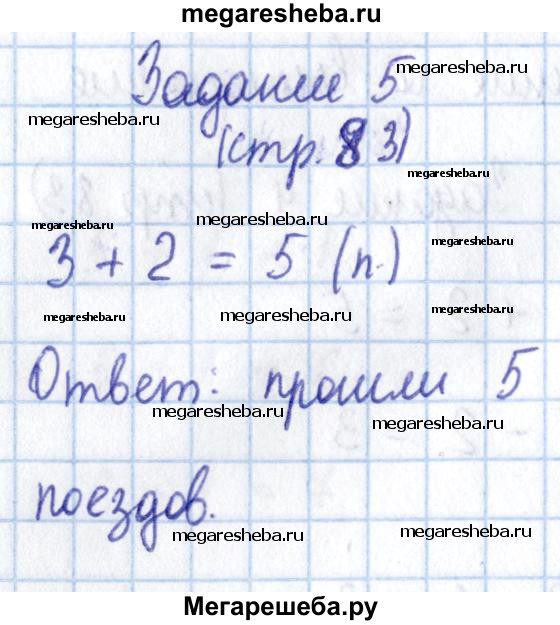 megaresheba.ru
Задание 5
megaresheba.ru
megaresheba.ru
(стр. 83)
megaresheba.ru
megaresheba.ru
megaresheba.ru
3 + 2 = 5 (п.)
megaresheba.ru
megaresheba.ru
megaresheba.ru
megaresheba.ru
Ответ: прошли 5
megaresheba.ru
megaresheba.ru
поездов.
megaresheba.ru
megaresheba.ru
Мегарешеба.ру